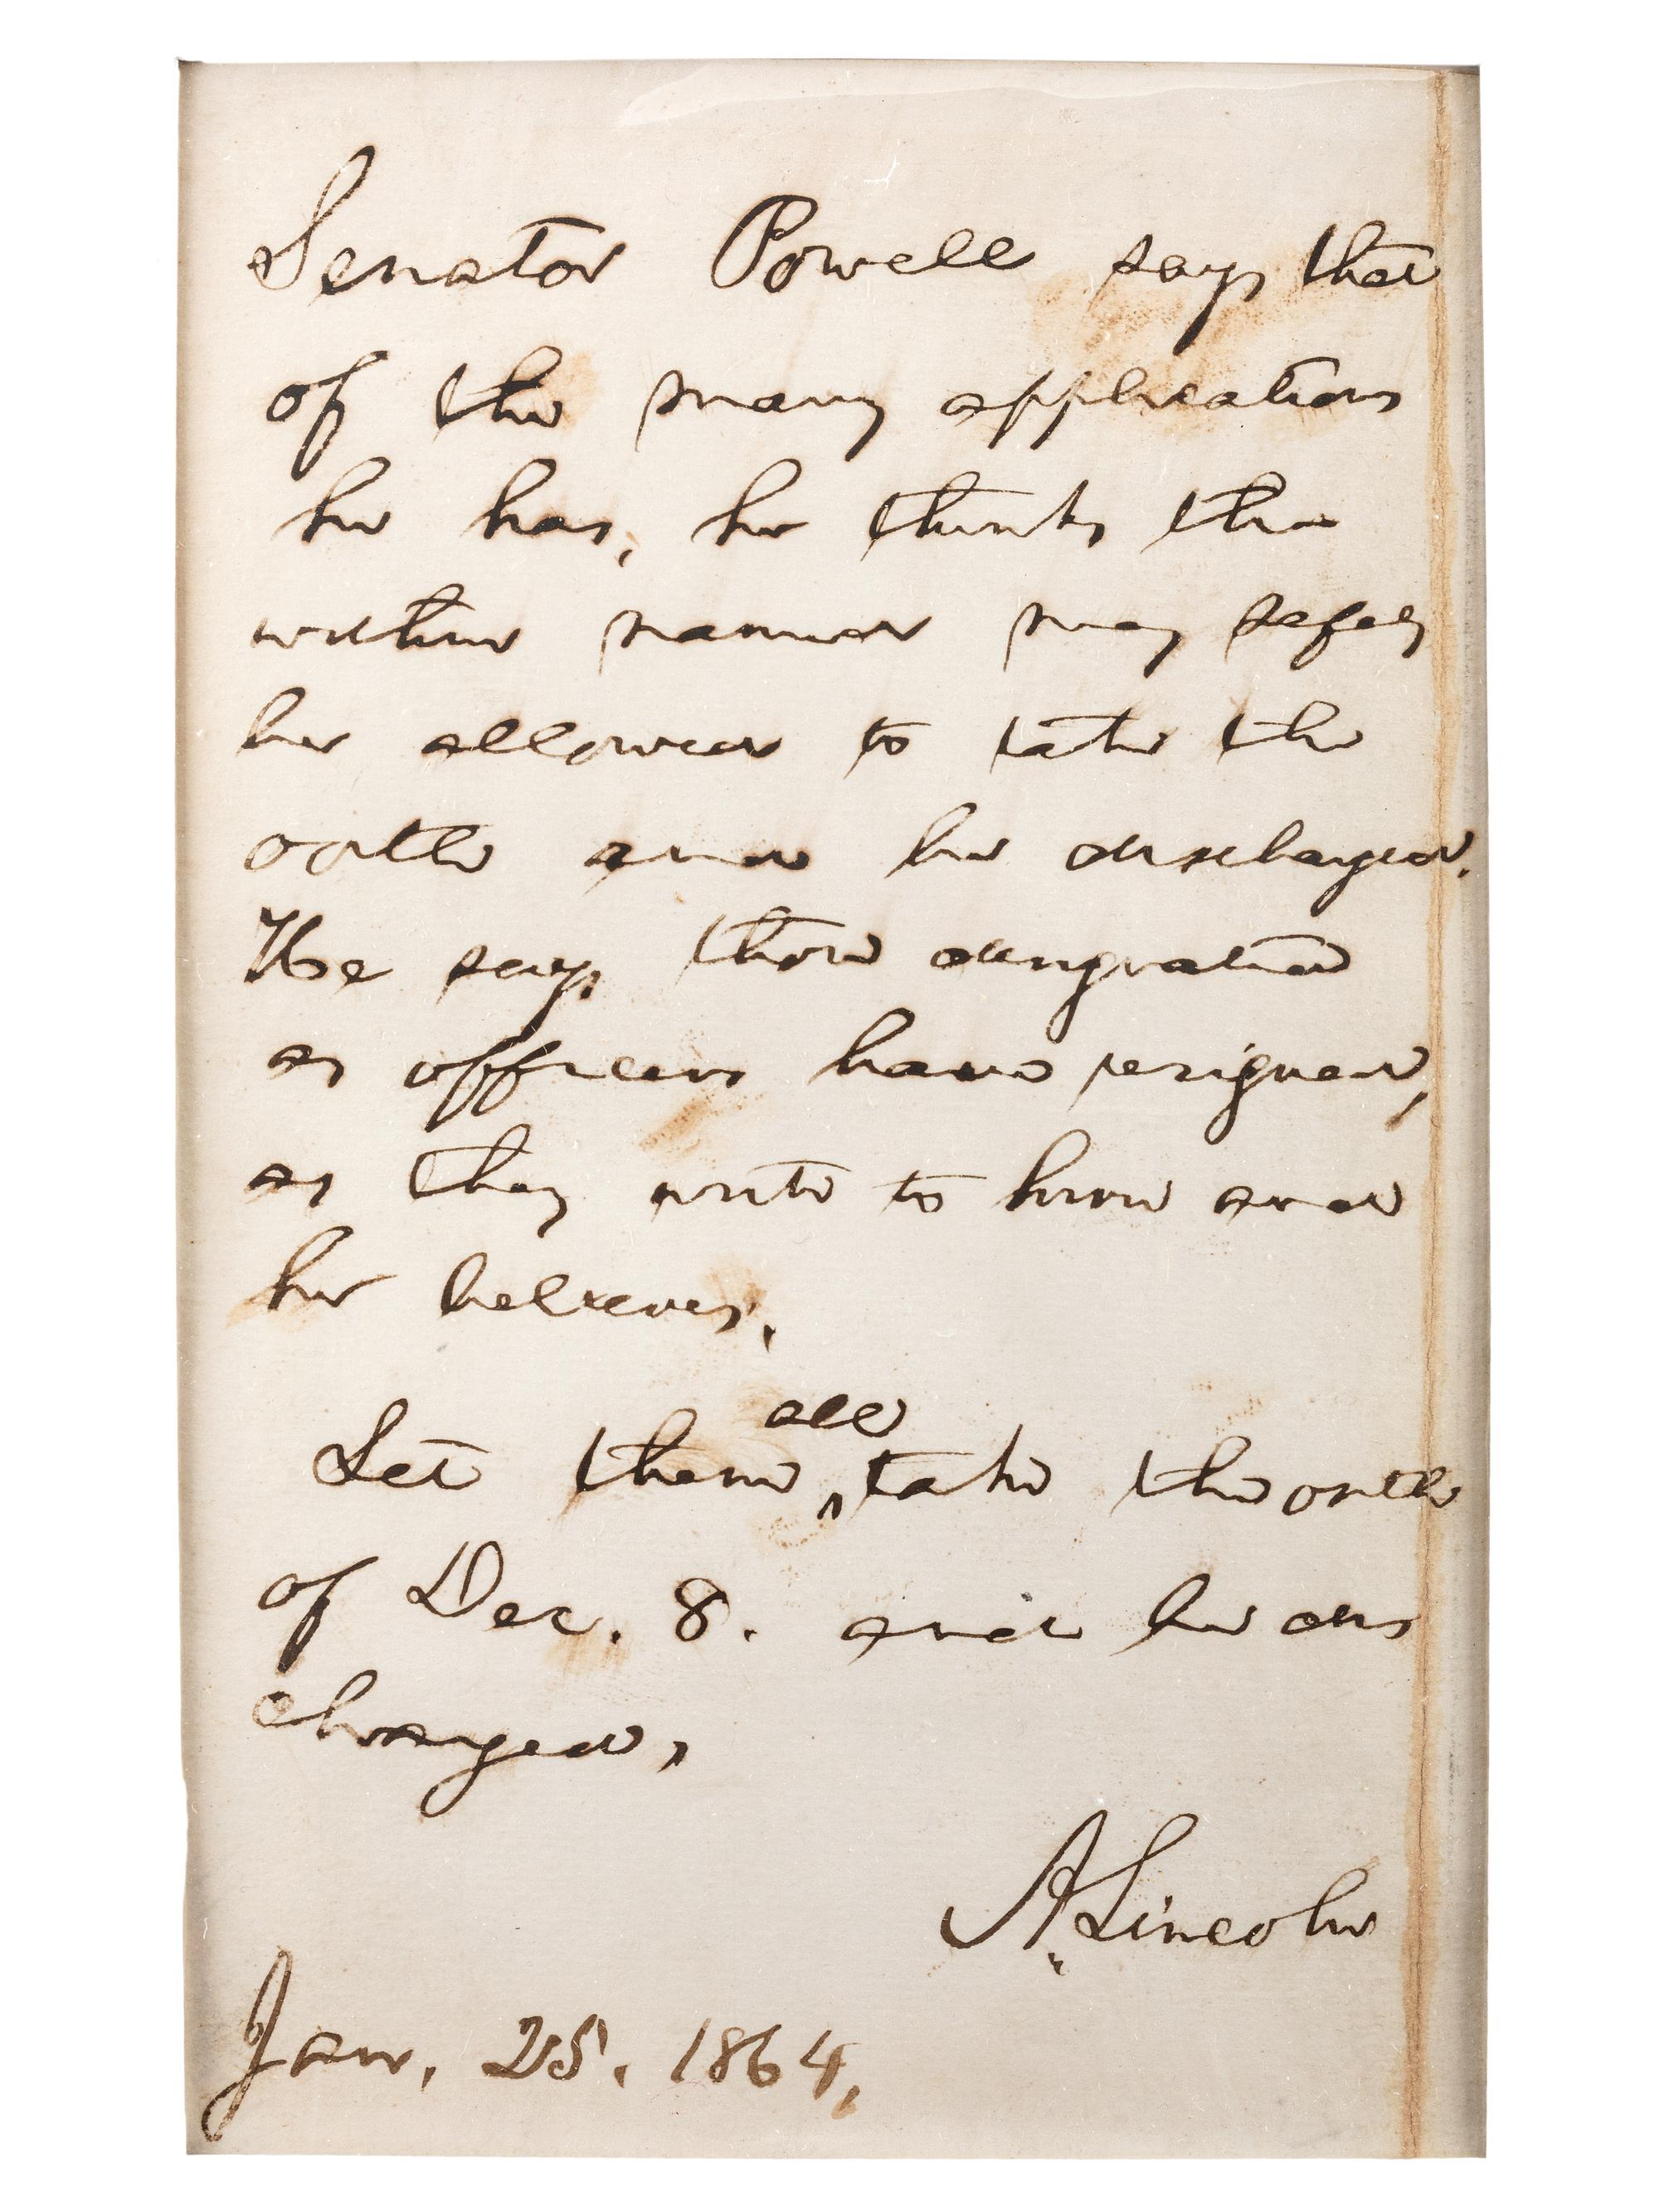 Senator Powell says that
of the many applications
he has, he thinks the
within named may safely
be allowed to take the
oath and be discharged.
He says those designated
as officers have resigned,
as they write to him and
he believes.
all
Let them ^ take the oath
of Dec. 8. and be dis
charged.
A. Lincoln
Jan. 25. 1864.